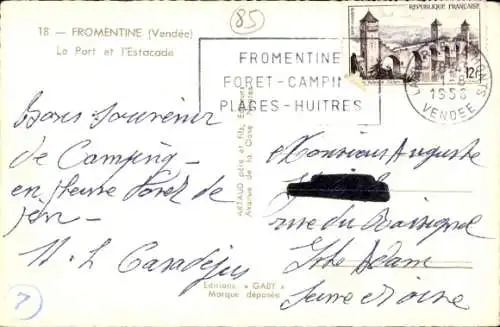 18 — FROMENTINE (Vendée)
Le Port et l'Estacade
85
FROMENTINE
FORET-CAMPING
PLAGES-HUITRES
REPUBLIQUE FRANÇAISE
12F
1956
VENDEE
Bons Souvenir
de Camping
en pleine Forêt de
pin
ARTAUD père et fils, Éditeurs
Avenue de la Close
Monsieur Auguste
rue du Rossignol
Isle Adam
Seine et Oise
Editions « GABY »
Marque déposée
7